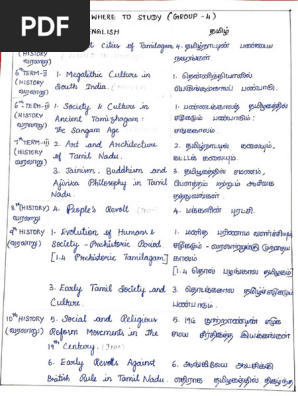 PDF
WHERE TO STUDY (GROUP-4)
ENGLISH
தமிழ்
(HISTORY
வரலாறு)
cities of Tamilagam
4. தமிழ்நாட்டின் பண்டைய
நகரங்கள்
6th TERM-II
(HISTORY
வரலாறு)
1. Megalithic Culture in
South India.
1. தென்னிந்தியாவில்
பெருங்கற்காலப் பண்பாடு.
6th TERM-III
(HISTORY
வரலாறு)
1. Society & Culture in
Ancient Tamizhagam:
The Sangam Age
1. பண்டைக்காலத் தமிழகத்தில்
சமூகமும் பண்பாடும்:
சங்ககாலம்
7th TERM-III
(HISTORY
வரலாறு)
2. Art and Architecture
of Tamil Nadu.
2. தமிழ்நாட்டின் கலையும்,
கட்டடக் கலையும்
3. Jainism, Buddhism and
Ajivika Philosophy in Tamil
Nadu
3. தமிழகத்தில் சமணம்,
பௌத்தம் மற்றும் ஆசீவக
தத்துவங்கள்
8th (HISTORY)
வரலாறு
4. People's Revolt
4. மக்களின் புரட்சி.
9th HISTORY
(வரலாறு)
1. Evolution of Humans &
Society - Prehistoric Period
[1.4 Prehistoric Tamilagam]
1. மனித பரிணாம வளர்ச்சியும்
சமூகமும் - வரலாற்றுக்கு முந்தைய
காலம்
[1.4 தொல் பழங்கால தமிழகம்]
3. Early Tamil Society and
Culture.
3. தொடக்ககால தமிழ்ச்சமூகமும்
பண்பாடும்.
10th HISTORY
(வரலாறு)
5. Social and Religious
Reform Movements in the
19th Century.
5. 19ம் நூற்றாண்டின் சமூக
சமய சீர்திருத்த இயக்கங்கள்
6. Early Revolts Against
British Rule in Tamil Nadu.
6. ஆங்கிலேய ஆட்சிக்கு
எதிராக தமிழகத்தில் நிகழ்ந்த